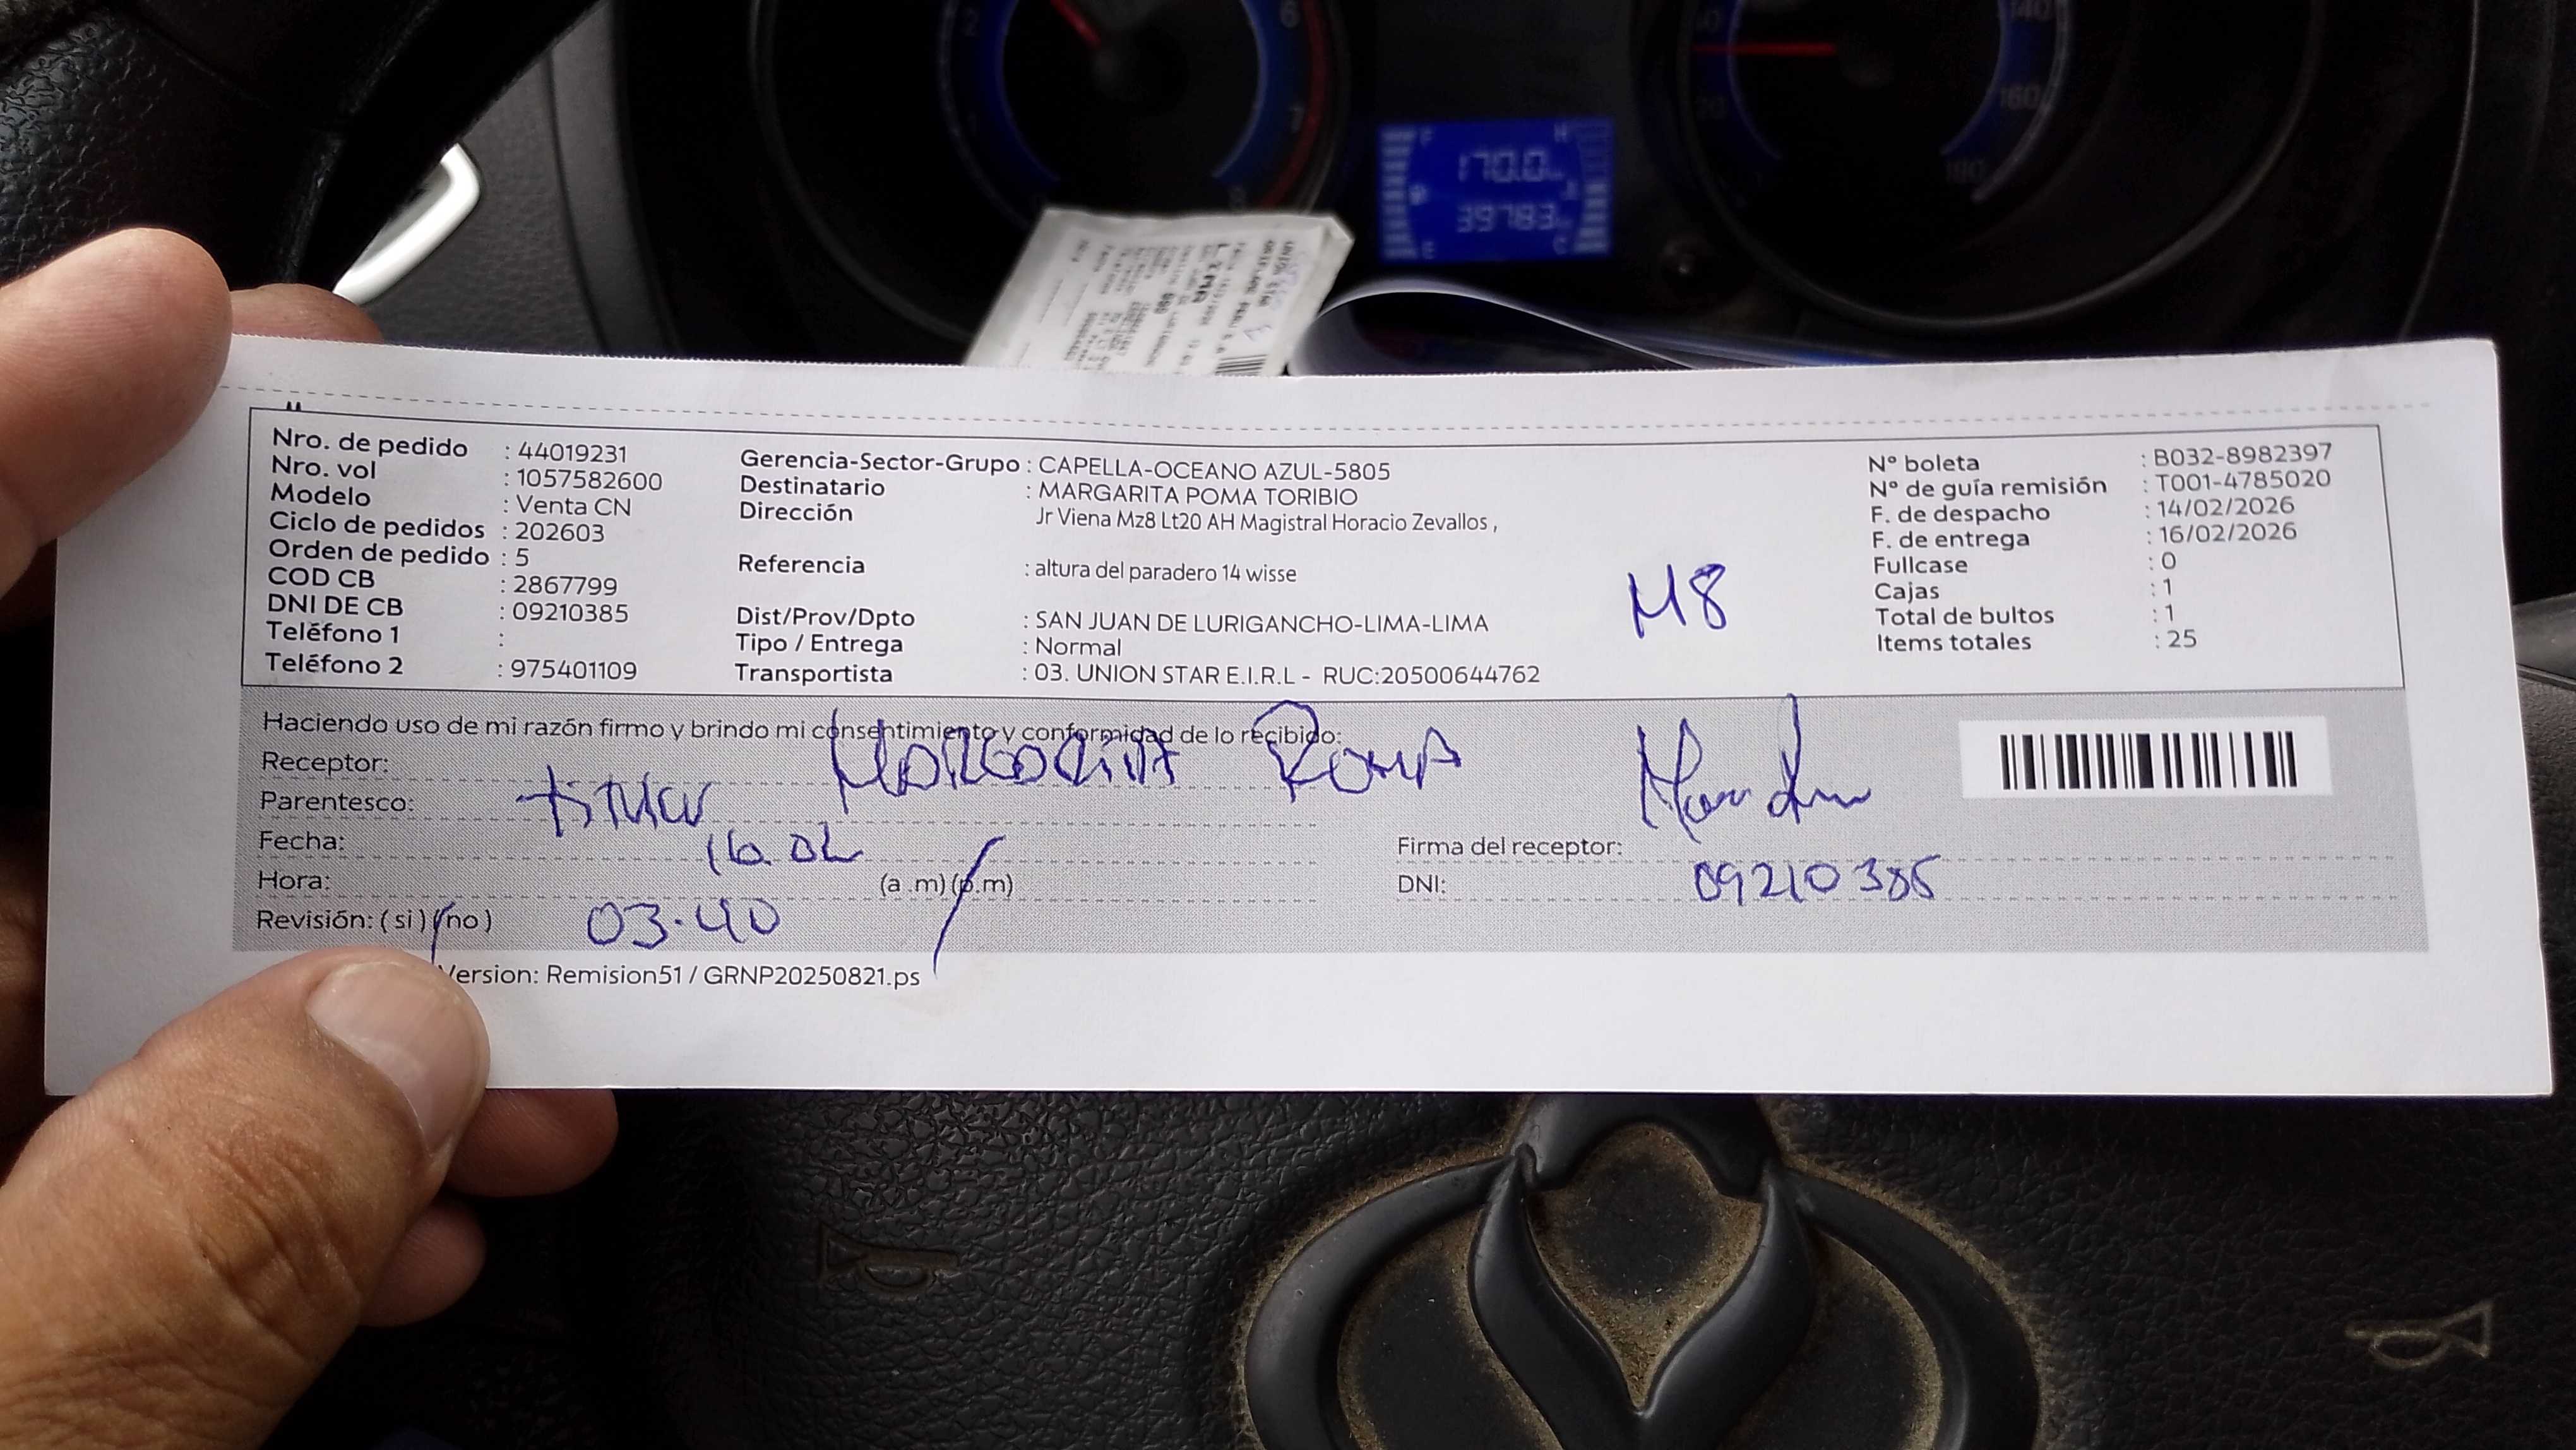 Nro. de pedido : 44019231
Nro. vol : 1057582600
Modelo : Venta CN
Ciclo de pedidos : 202603
Orden de pedido : 5
COD CB : 2867799
DNI DE CB : 09210385
Teléfono 1 :
Teléfono 2 : 975401109
Gerencia-Sector-Grupo : CAPELLA-OCEANO AZUL-5805
Destinatario : MARGARITA POMA TORIBIO
Dirección Jr Viena Mz8 Lt20 AH Magistral Horacio Zevallos ,
Referencia : altura del paradero 14 wisse
Dist/Prov/Dpto : SAN JUAN DE LURIGANCHO-LIMA-LIMA
Tipo / Entrega : Normal
Transportista : 03. UNION STAR E.I.R.L - RUC:20500644762
M8
N° boleta : B032-8982397
N° de guía remisión : T001-4785020
F. de despacho : 14/02/2026
F. de entrega : 16/02/2026
Fullcase : 0
Cajas : 1
Total de bultos : 1
Items totales : 25
Haciendo uso de mi razón firmo y brindo mi consentimiento y conformidad de lo recibido:
Receptor: Margarita Poma
Parentesco: titular
Fecha: 16.02
Hora: 03.40 (a .m) (p.m)
Revisión: ( si ) ( no )
Firma del receptor:
DNI: 09210385
Version: Remision51 / GRNP20250821.ps
170.0
39783